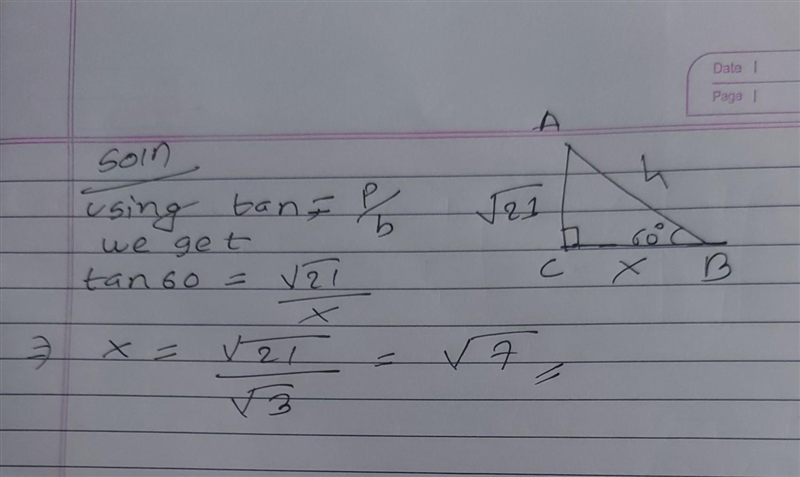 Date
Page
Soln
using tan = P/b
we get
tan 60 = √21/x
⇒ x = √21/√3 = √7
A
√21
h
60°
C
x
B